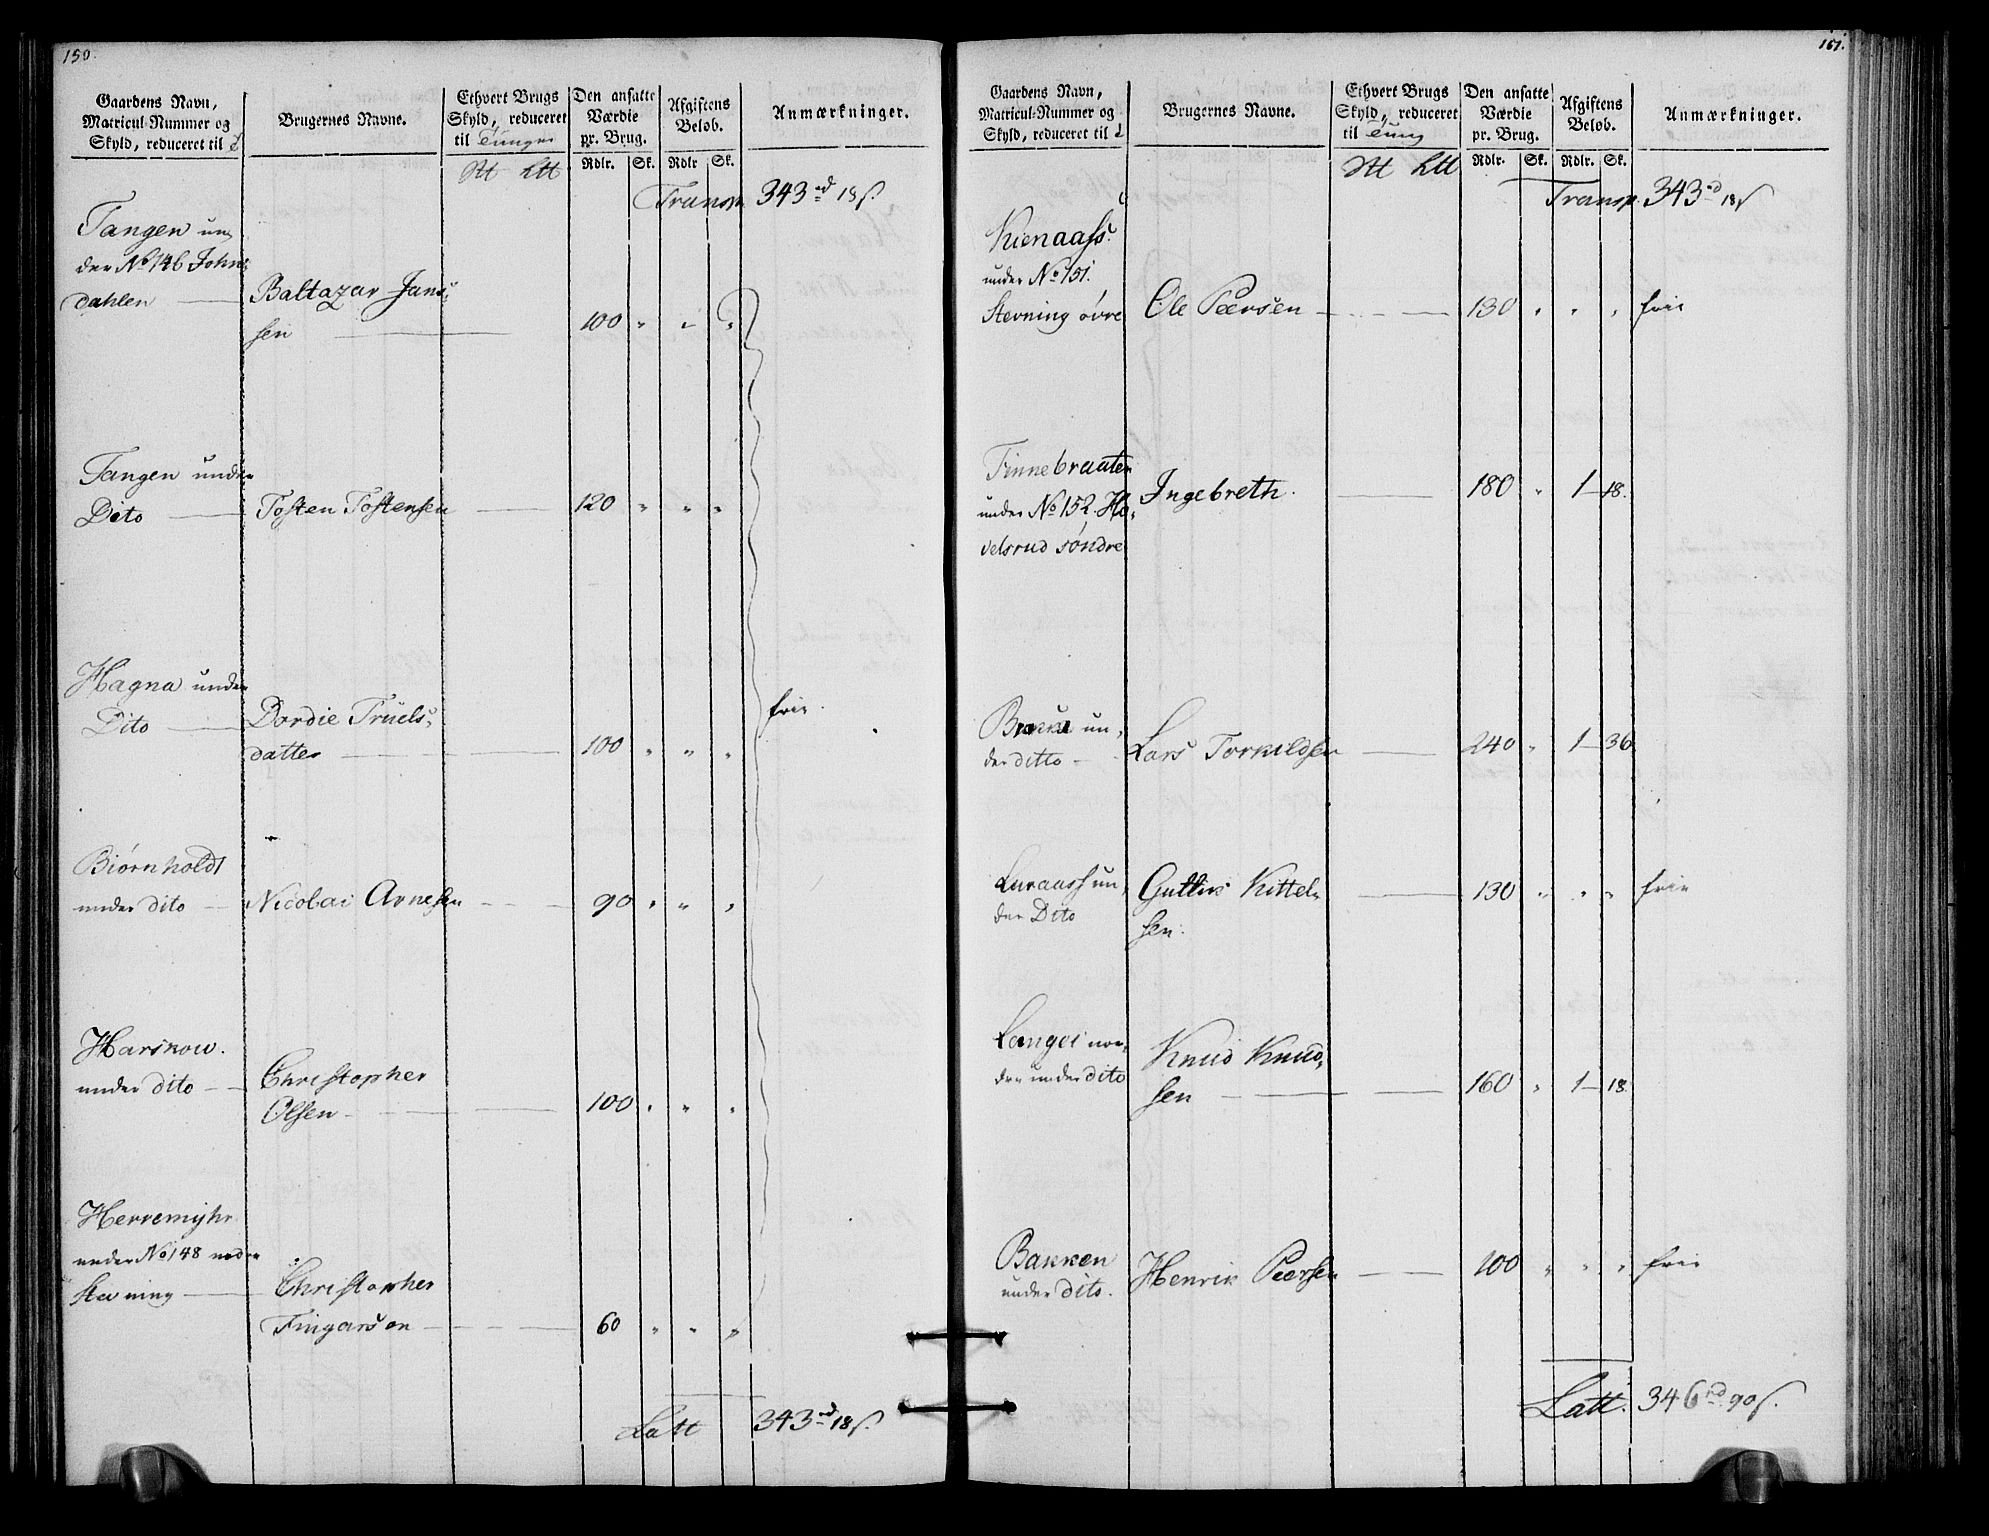 150.
Gaardens Navn,
Matricul-Nummer og
Skyld, reduceret til
Brugernes Navne.
Ethvert Brugs
Skyld, reduceret
til Tunge
Den ansatte
Værdie
pr. Brug.
Afgiftens
Beløb.
Anmærkninger.
Rdlr. Sk. Rdlr Sk.
Transp. 343 rd 18 s.
Tangen un
der No 146 Johns
dahlen
Baltazar Jans
sen 100 " " "
Tangen under
Dito Tosten Tostensen 120 " " "
Hagna under
Dito
Dordie Truels
datter 100 " " "
frie.
Biørnholdt
under dito Nicolai Arnesen 90 " " "
Harskow.
under dito
Christopher
Olsen 100 " " "
Herremyhr
under No 148 nedre
Stevning
Christopher
Fingarsen 60 " " "
Latt 343 rd 18 s.
151.
Gaardens Navn,
Matricul-Nummer og
Skyld, reduceret til
Brugernes Navne.
Ethvert Brugs
Skyld, reduceret
til Tung
Den ansatte
Værdie
pr. Brug.
Afgiftens
Beløb.
Anmærkninger.
Rdlr. Sk. Rdlr. Sk.
Transp. 343 rd 18 s
Kienaass.
under No 151.
Stevning øvre Ole Peersen 130 " " " frie
Finnebraaten
under No 152. Ho
velsrud søndre
Ingebreth. 180 " 1 18.
un
der ditto Lars Torkildsen 240 " 1 36
Luraass un
der Dito
Gullik Kittel
sen. 130 " " " frie
Langei nor
dre under dito
Knud Knud
sen 160 " 1 18.
Bakken
under dito.
Henrik Peersen 100 " " " frie
Latt. 346 rd 90 s.